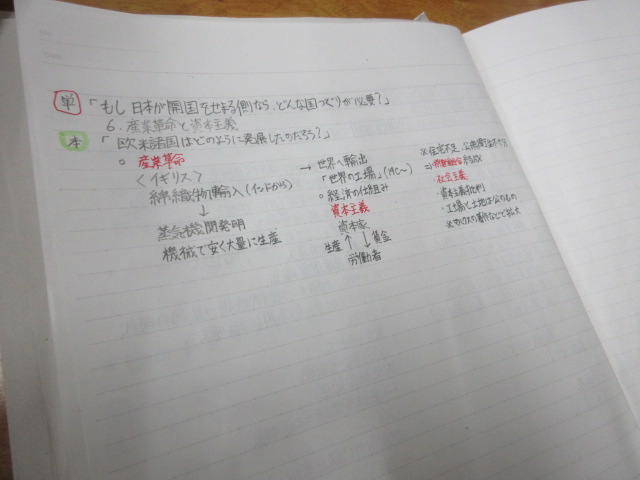 単 「もし日本が開国をせまる側なら、どんな国づくりが必要?」
6. 産業革命と資本主義
本 「欧米諸国はどのように発展したのだろう?」
○ 産業革命
<イギリス>
綿織物輸入(インドから)
↓
蒸気機関発明
機械で安く大量に生産
→ 世界へ輸出
「世界の工場」(19C~)
○ 経済の仕組み
資本主義
資本家
生産 ↑ ↓ 賃金
労働者
※住宅不足、公衆衛生
⇒ 労働組合 結成
・社会主義
資本主義批判
・工場と土地は公のもの
※マルクスの著作などで拡大